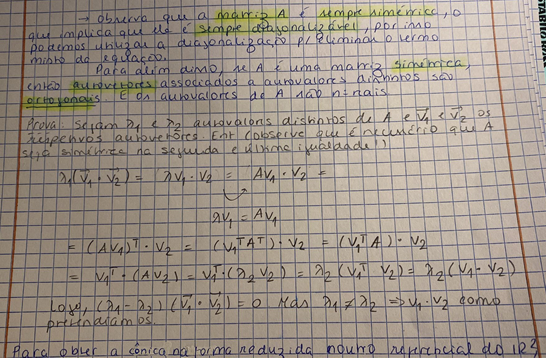 → observa que a matriz A é sempre simétrica, o
que implica que ela é sempre diagonalizável, por isso
podemos utilizar a diagonalização p/ eliminar o termo
misto da equação.
Para além disso, se A é uma matriz simétrica,
então autovetores associados a autovalores distintos são
ortogonais. E os autovalores de A são
Prova Sejam λ1 e λ2 autovalores distintos de A e v1 e v2 os
respetivos autovetores. Ent (observe que é necessário que A
seja simétrica na segunda e última igualdade!)
λ1(v1 · v2) = λv1 · v2 = Av1 · v2 =
λv1 = Av1
= (Av1)ᵀ · v2 = (v1ᵀAᵀ) · v2 = (v1ᵀA) · v2
= v1ᵀ · (Av2) = v1ᵀ · (λ2v2) = λ2(v1ᵀ v2) = λ2(v1 · v2)
Logo, (λ1 - λ2)(v1 · v2) = 0 Mas λ1 ≠ λ2 => v1 · v2 como
pretendíamos.
Para obter a cônica na forma reduzida noutro referencial do R²